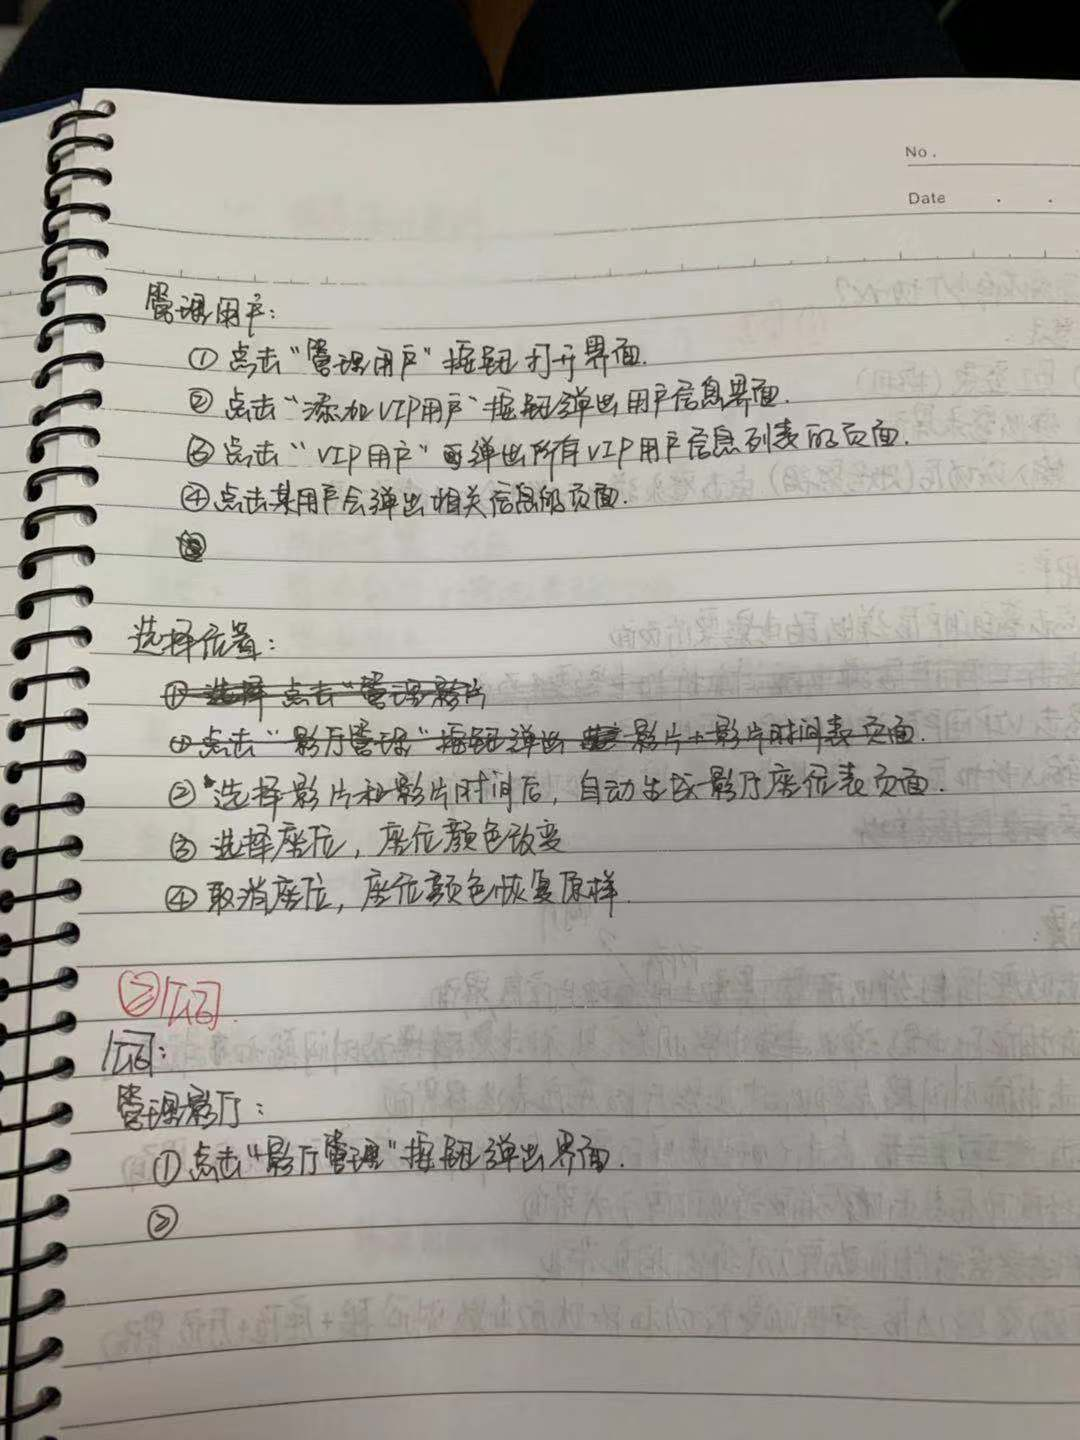 No.
Date
管理用户：
①点击“管理用户”按钮打开界面.
②点击“添加VIP用户”按钮弹出用户信息界面.
③点击“VIP用户”弹出所有VIP用户信息列表的页面.
④点击某用户会弹出相关信息的页面.
选择位置：
①选择点击“管理影片
①点击“影厅管理”按钮弹出影片+影片时间表页面.
②选择影片和影片时间后，自动生成影厅座位表页面.
③选择座位，座位颜色改变
④取消座位，座位颜色恢复原样.
②
管理影厅：
①点击“影厅管理”按钮弹出界面.
②